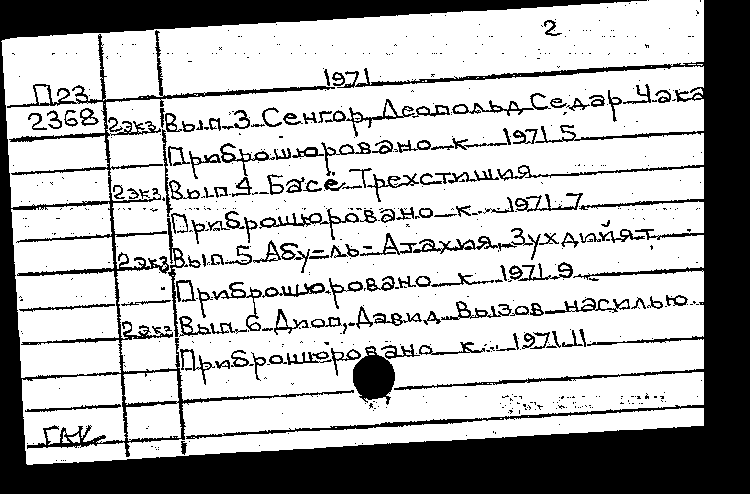 2
П23 1971
2368 2экз. Вып. 3 Сенгор, Леопольд Седар Чака
Приброшюровано к 1971.5
2экз. Вып. 4 Басё. Трехстишия
Приброшюровано к 1971.7
2экз. Вып. 5 Абу-ль-Атахия. Зухдийят.
Приброшюровано к 1971.9
2экз. Вып. 6 Диоп, Давид Вызов насилью
Приброшюровано к 1971.11